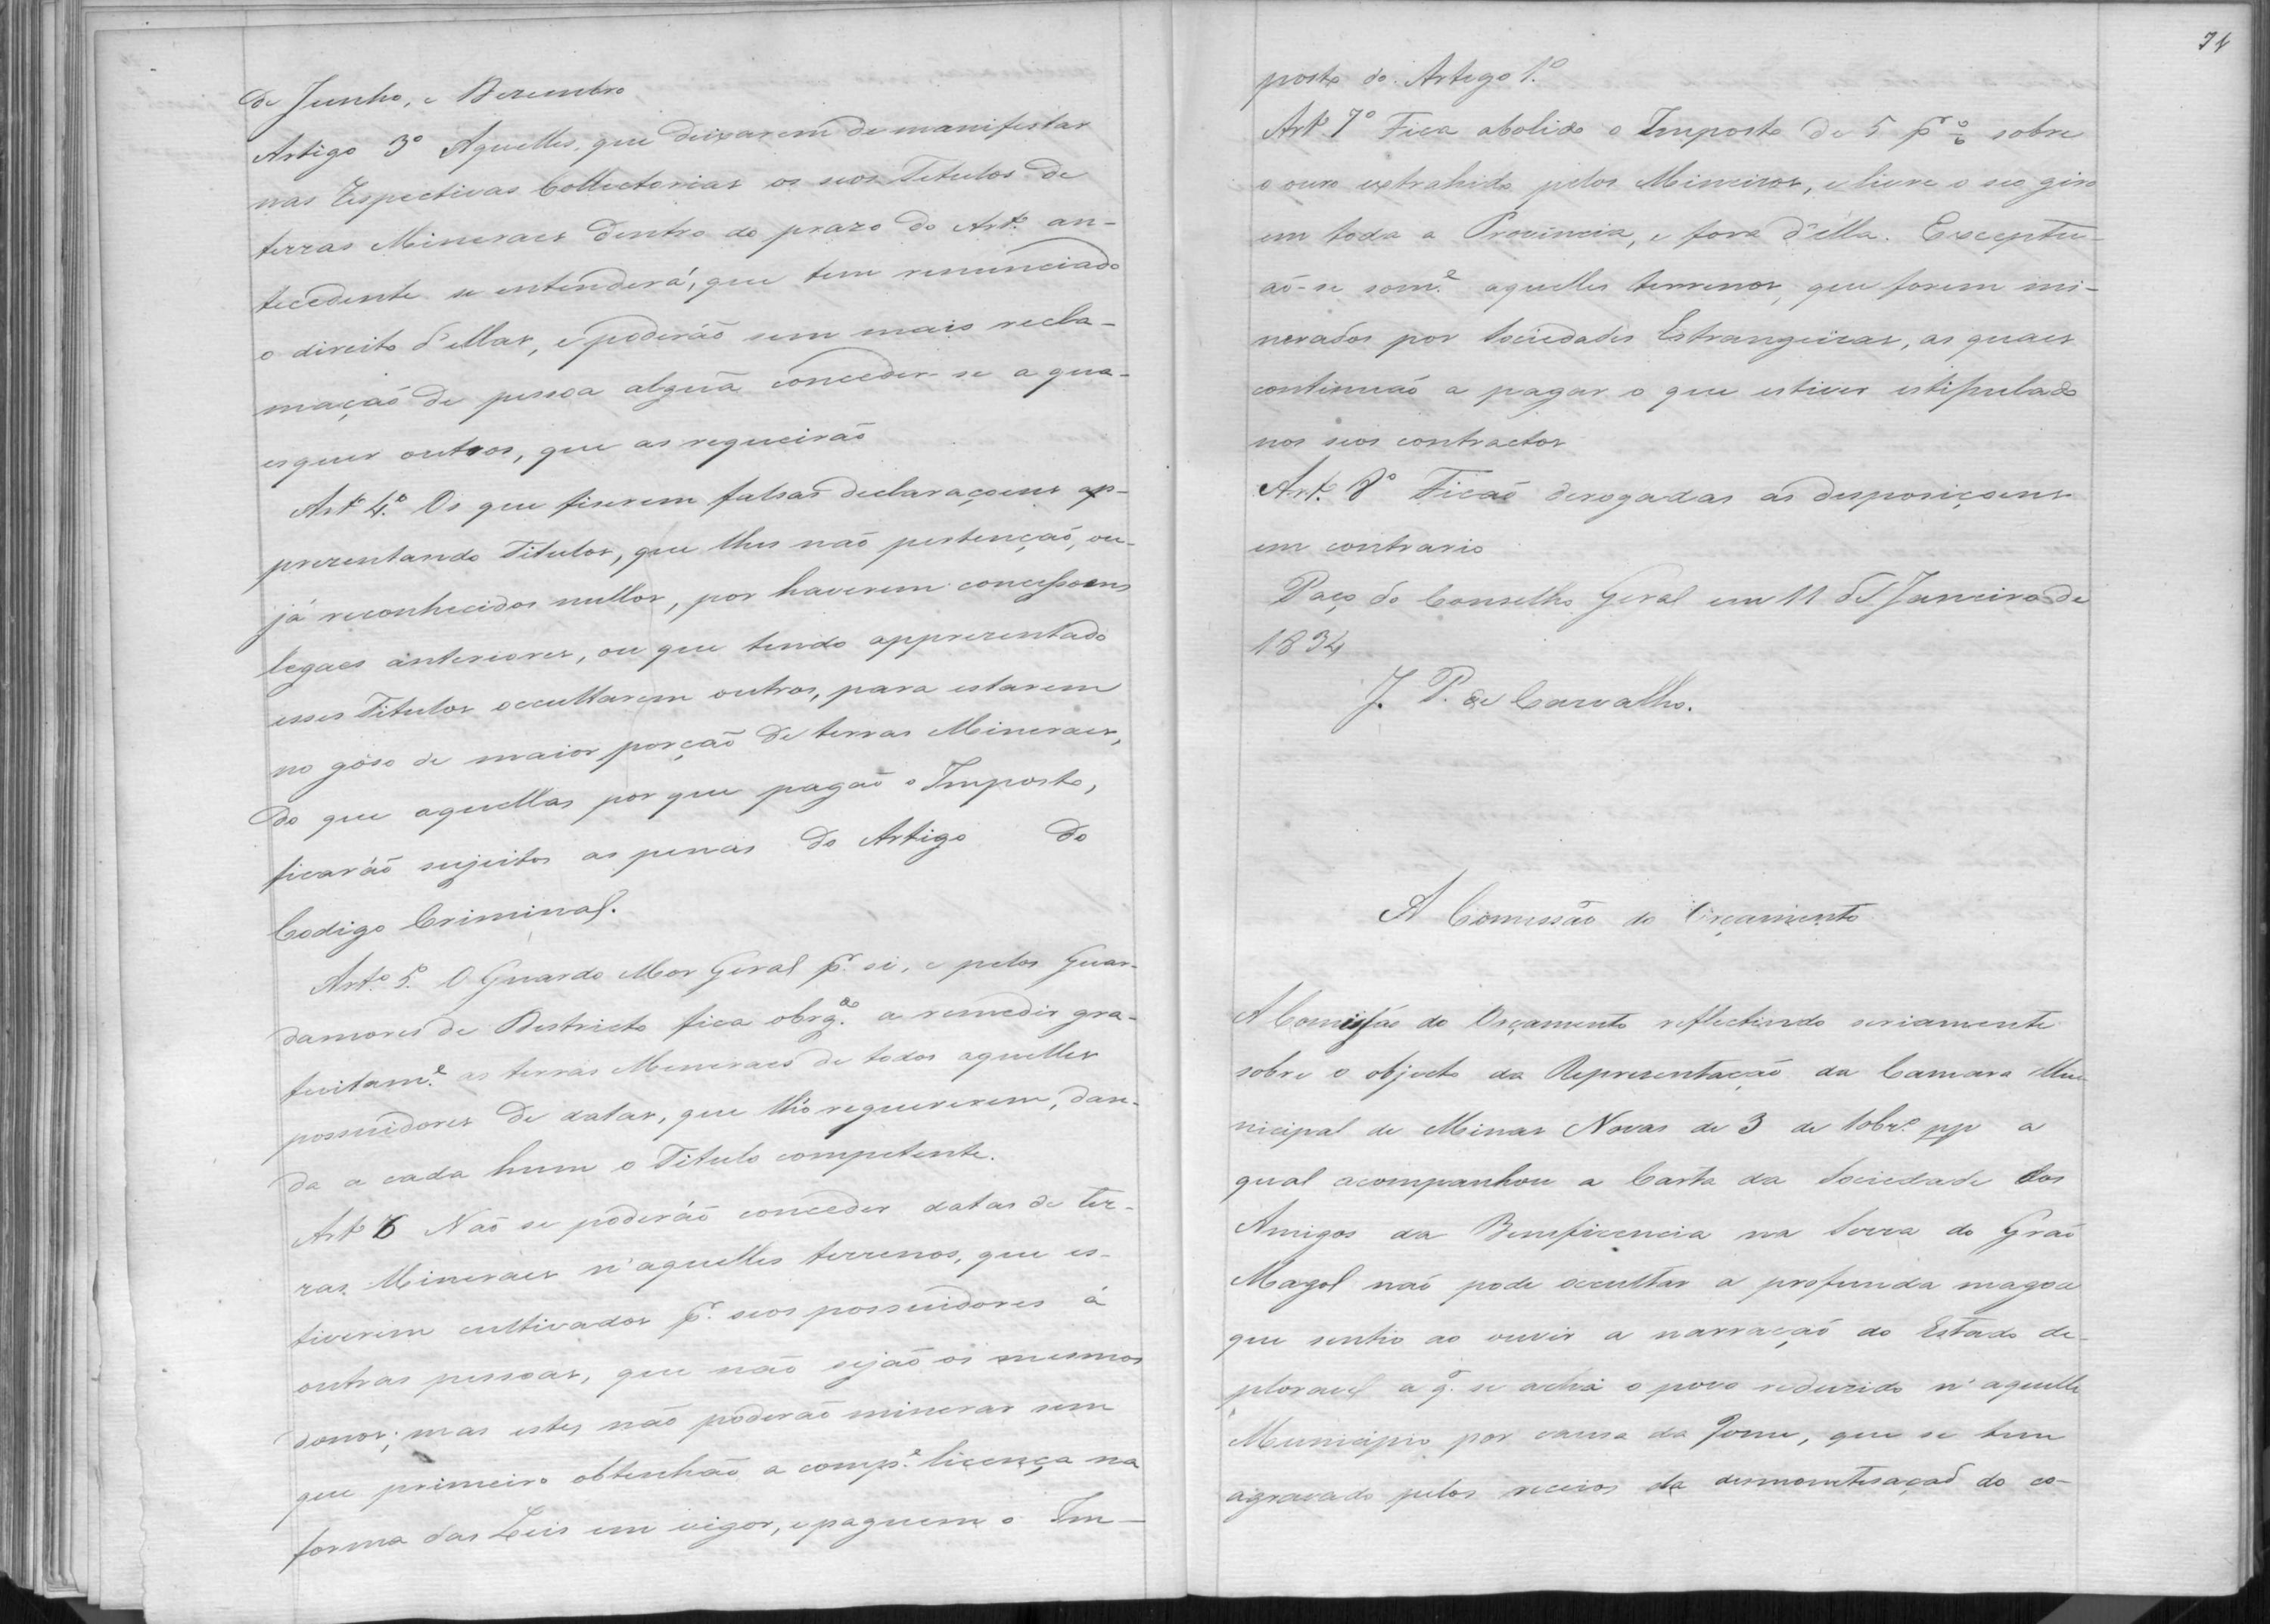 de Junho, e Dezembro
Artigo 3º Aquelles, que deixarem de manifestar
nas Respectivas Collectorias os seos Titulos de
terras Mineraes dentro do prazo do Artº an-
tecedente se entenderá, que tem renunciado
o direito d'ellas, e poderáõ sem mais recla-
maçaõ de pessoa algũa conceder-se a qua-
esquer outros, que as requeiraõ
Artº 4º Os que fiserem falsas declaraçoens ap-
prezentando Titulos, que lhes naõ pertençaõ, ou
já reconhecidos nullos, por haverem concessoens
legaes anteriores, ou que tendo apprezentado
esses Titulos occultarem outros, para estarem
no gôso de maior porçaõ de terras Mineraes,
do que aquellas por que pagaõ o Imposto,
ficaráõ sujeitos as penas do Artigo do
Codigo Criminal.
Artº 5º O Guarda Mor Geral pr. si, e pelos Guar-
damores de Destricto fica obrgdo. a remedir gra-
tuitame. as terras Meneraes de todos aquelles
possuidores de datas, que lh'o requererem, dan-
do a cada hum o Titulo competente.
Artº 6 Naõ se poderáõ conceder datas de ter-
ras Mineraes n'aquelles terrenos, que es-
tiverem cultivados pr. seos possuidores á
outras pessoas, que naõ sejaõ os mesmos
donos; mas estes naõ poderaõ minerar sem
que primeiro obtenhaõ a compe. licença na
forma das Leis em vigor, e paguem o Im-
74
posto do Artego 1.º
Artº 7º Fica abolido o Imposto de 5 pr % sobre
o ouro extrahido pelos Mineiros, e livre o seo giro
em toda a Provincia, e fora d'élla. Exceptu-
aõ-se some. aquelles terrenos, que forem mi-
nerados por Sociedades Estrangeiras, as quaes
continuaõ a pagar o que estiver estipulado
nos seos contractos
Artº 8º Ficaõ derogadas as desposiçoens
em contrario
Paço do Conselho Geral em 11 de Janeiro de
1834
J. P. de Carvalho.
A Comissão do Orçamento
A Comissão do Orçamento reflectindo seriamente
sobre o objecto da Reprezentaçaõ da Camara Mu-
nicipal de Minas Novas de 3 de 10br.º pp a
qual acompanhou a Carta da Sociedade dos
Amigos da Beneficencia na Serra do Graõ
Magol naõ pode occultar a profunda magoa
que sentio ao ouvir a narraçaõ do Estado de-
ploravel a q. se acha o povo reduzido n'aquelle
Municipio por causa da Fome, que se tem
agravado pelos receios da desmonetisaçaõ do co-